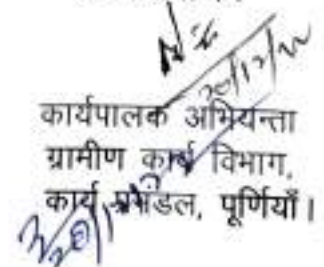 20/12/22
कार्यपालक अभियन्ता
ग्रामीण कार्य विभाग,
कार्य प्रमंडल, पूर्णियाँ।